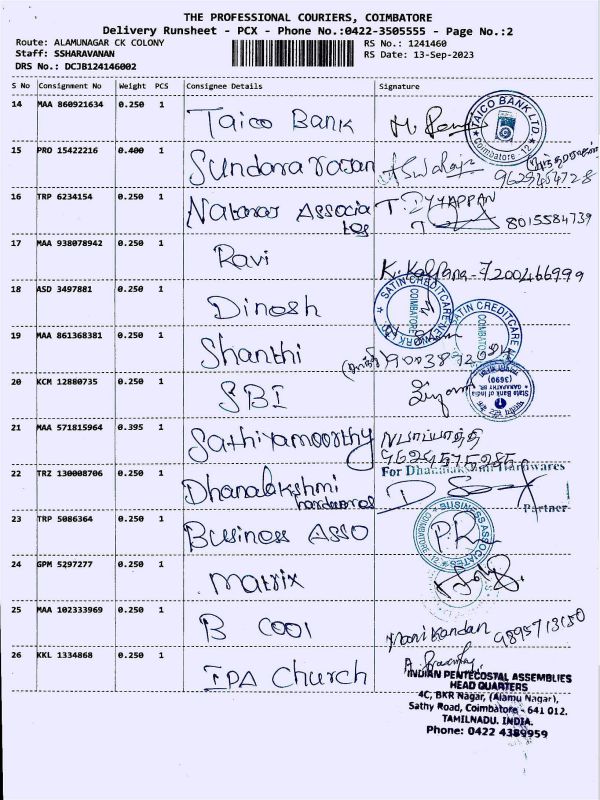 THE PROFESSIONAL COURIERS, COIMBATORE
Delivery Runsheet - PCX - Phone No.:0422-3505555 - Page No.:2
Route: ALAMUNAGAR CK COLONY
RS No.: 1241460
Staff: SSHARAVANAN
RS Date: 13-Sep-2023
DRS No.: DCJB124146002
S No Consignment No Weight PCS Consignee Details Signature
14 MAA 860921634 0.250 1 Taico Bank
TAICO BANK LTD. Coimbatore 12
15 PRO 15422216 0.400 1 Sundara rajan
9629454728
16 TRP 6234154 0.250 1 Nataraj Associates T. IYYAPPAN
8015584739
17 MAA 938078942 0.250 1 Ravi
K. Kalpana - 7200466999
18 ASD 3497881 0.250 1 Dinesh
SATIN CREDITCARE NETWORK COIMBATORE
19 MAA 861368381 0.250 1 Shanthi
SATIN CREDITCARE COIMBATORE
20 KCM 12880735 0.250 1 SBI
State Bank of India GANAPATHY BR. (3690)
21 MAA 571815964 0.395 1 Sathiyamoorthy
22 TRZ 130008706 0.250 1 Dhanalakshmi hardwares
For Dhanalakshmi Hardwares
Partner
23 TRP 5086364 0.250 1 Business Asso
BUSINESS ASSOCIATES COIMBATORE - 12 P.R
24 GPM 5297277 0.250 1 matrix
25 MAA 102333969 0.250 1 B cool
Manikandan 9895713150
26 KKL 1334868 0.250 1 IPA Church
INDIAN PENTECOSTAL ASSEMBLIES
HEAD QUARTERS
4C, BKR Nagar, (Alamu Nagar),
Sathy Road, Coimbatore - 641 012.
TAMILNADU. INDIA.
Phone: 0422 4389959